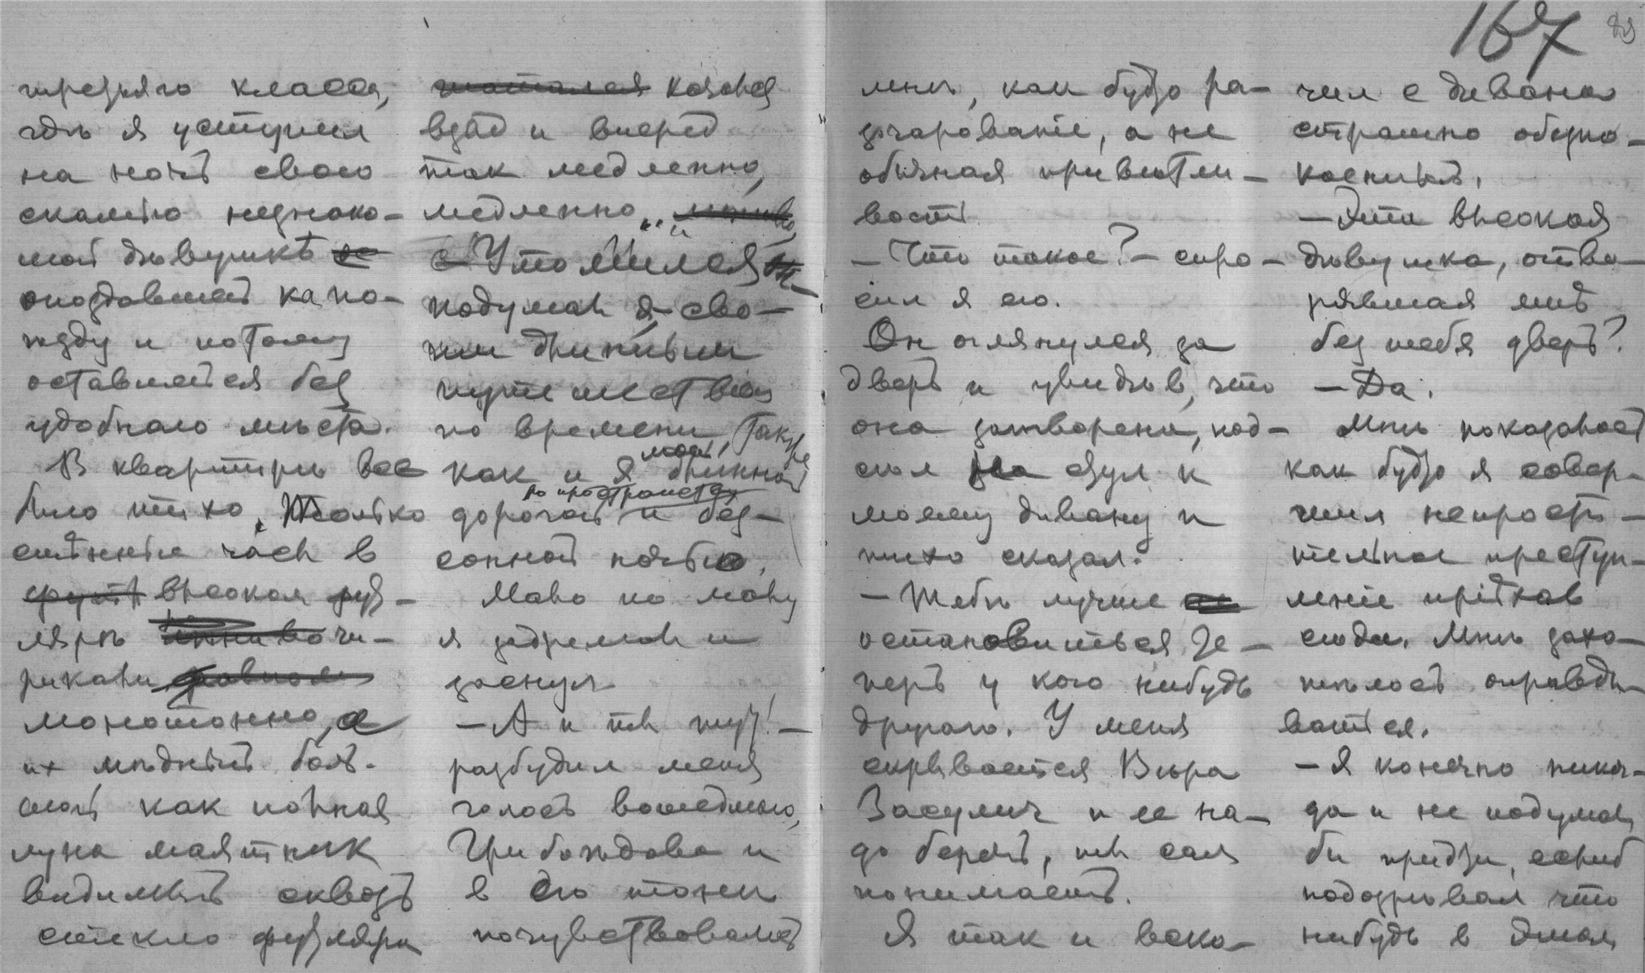 167
83
третьяго класса,
гдѣ я уступил
на ночь свою
скамью незнако-
мой дѣвушкѣ
опоздавшей к по-
езду и потому
оставшейся без
удобнаго мѣста.
В квартирѣ все
было тихо. Только
стѣнные часы в
высоком фут-
лярѣ чи-
рикали
монотонно, а
их мѣдный боль-
шой как полная
луна маятник
видимый сквозь
стекло футляра
шатался качался
взад и вперед
так медленно,
медленно...
„Утомился
подумал я сво-
им длинным
путешествием
по времени, так же
как и я моей длинной
по пространству
дорогой и без-
сонной ночью.
Мало по малу
я задремал и
заснул
— А и ты тут! —
разбудил меня
голос вошедшаго
Грибоѣдова и
в его тонѣ
почувствовалось
мнѣ, как будто ра-
зочарованіе, а не
обычная привѣтли-
вость
— Что такое? — спро-
сил я его.
Он оглянулся за
дверь и увидѣв, что
она затворена, под-
сѣл на стул к
моему дивану и
тихо сказал:
— Тебѣ лучше
остановиться те-
перь у кого нибудь
другого. У меня
скрывается Вѣра
Засулич и ее на-
до беречь, ты сам
понимаешь.
Я так и вско-
чил с дивана
страшно обезпо-
коенный.
— Эта высокая
дѣвушка, отво-
рявшая мнѣ
без тебя дверь?
— Да.
Мнѣ показалось
как будто я совер-
шил непрости-
тельное преступ-
леніе пріѣхав
сюда. Мнѣ захо-
тѣлось оправды-
ваться.
— Я конечно никог-
да и не подумал
бы придти, если б
подозрѣвал что
нибудь в этом